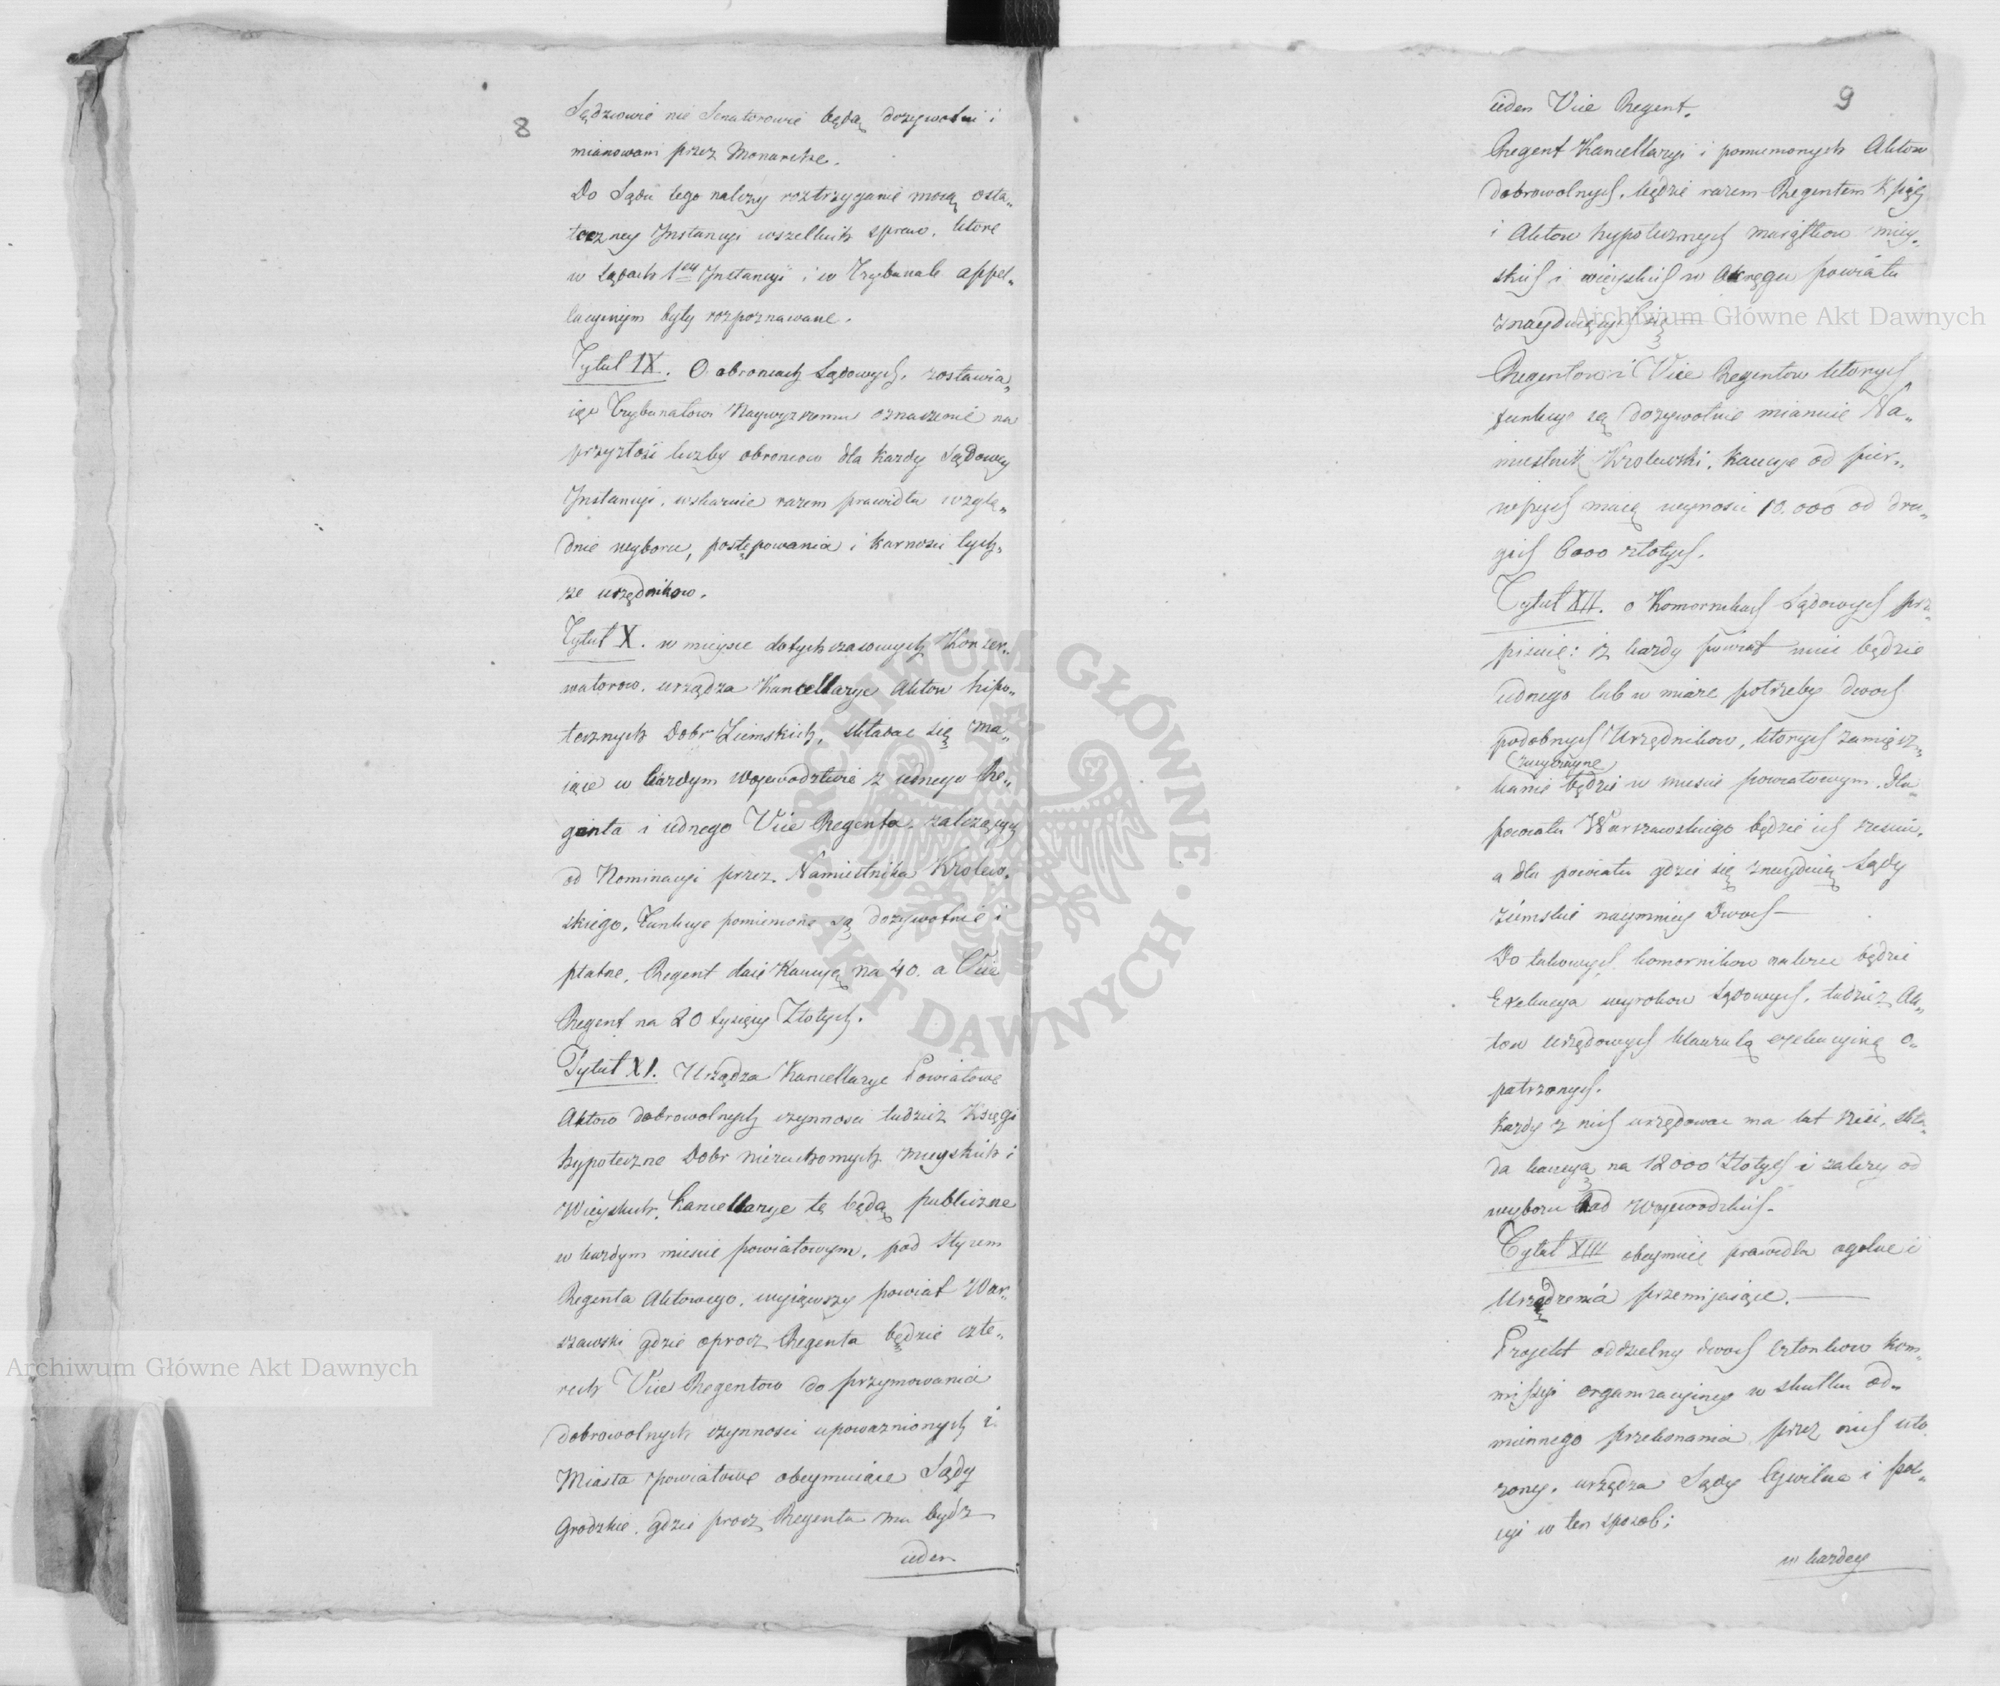 8
Sędziowie nie Senatorowie będą dożywotni i
mianowani przez Monarchę.
Do Sądu tego należy roztrzyganie mocą osta„
teczney Jnstancyi wszelkich spraw, które
w sądach 1ey Jnstancyi i w Trybunale appel„
lacyinym były rozpoznawane.
Tytuł IX. O obroncach Sądowych, zostawia„
iąc Trybunałowi Naywyższemu oznaczenie na
przyszłość liczby obroncow dla każdey Sądowey
Jnstancyi, wskazuie razem prawidła wzglę„
dnie wyboru, postępowania i karności tych„
że urzędnikow.
Tytuł X. w mieysce dotychczasowych Konser„
watorow, urządza Kancellarye Aktow hipo„
tecznych Dobr Ziemskich, składac się ma„
iące w każdym Woiewodztwie z iednego Re„
genta i iednego Vice Regenta, zależących
od Nominacyi przez Namiestnika Krolew„
skiego, Funkcye pomienione są dożywotnie i
płatne, Regent daie Kaucyą na 40. a Vice
Regent na 20 tysięcy Złotych.
Tytuł XI. Urządza Kancellarye Powiatowe
Aktow dobrowolnych czynnosci tudzież Księgi
hypoteczne Dobr nieruchomych mieyskich i
Wieyskich. Kancellarye te będą publiczne
w każdym mieście powiatowym, pod sterem
Regenta Aktowego, wyiąwszy powiat War„
szawski gdzie oprocz Regenta będzie czte„
rech Vice Regentow do przymowania
dobrowolnych czynnosci upowaznionych i
Miasta powiatowe obeymuiące Sądy
Grodzkie, gdzie procz Regenta ma bydź
ieden
9
ieden Vice Regent.
Regent Kancellaryi i pomienionych Aktow
dobrowolnych, będzie razem Regentem Xsiąg
i Aktow hypotecznych maiątkow miey„
skich i wieyskich w Okręgu powiatu
znayduiących się
Regentow i Vice Regentow ktorych
funkcye są dożywotnie mianuie Na„
miestnik Krolewski, kaucye od pier„
wszych maią wynosic 10.000 od dru„
gich 6000 złotych.
Tytuł XII. o Komornikach Sądowych prze
pisuie: iż każdy powiat miec będzie
iednego lub w miarę potrzeby dwoch
podobnych Urzędnikow, ktorych zamiesz„
zwyczayne
kanie będzie w miescie powiatowym. Dla
powiatu Warszawskiego będzie ich szesciu,
a dla powiatu gdzie się znayduią Sądy
ziemskie naymniey Dwoch
Do takowych komornikow należec będzie
Exekucya wyrokow Sądowych, tudzież Ak„
tow urzędowych klauzulą exekucyiną o„
patrzonych.
Każdy z nich urzędowac ma lat szesc, skła„
da kaucyą na 12000 Złotych i zależy od
wyboru Rad Woiewodzkich.
Tytuł XIII obeymuie prawidła ogolne i
Urządzenia przemijaiące.
Projekt oddzielny dwoch członkow kom„
missyi organizacyiney w skutku od„
miennego przekonania przez nich uło
żony, urządza Sądy Cywilne i pol„
icyi w ten sposob:
w każdey
Archiwum Główne Akt Dawnych
Archiwum Główne Akt Dawnych
ARCHIWUM GŁÓWNE · AKT DAWNYCH ·